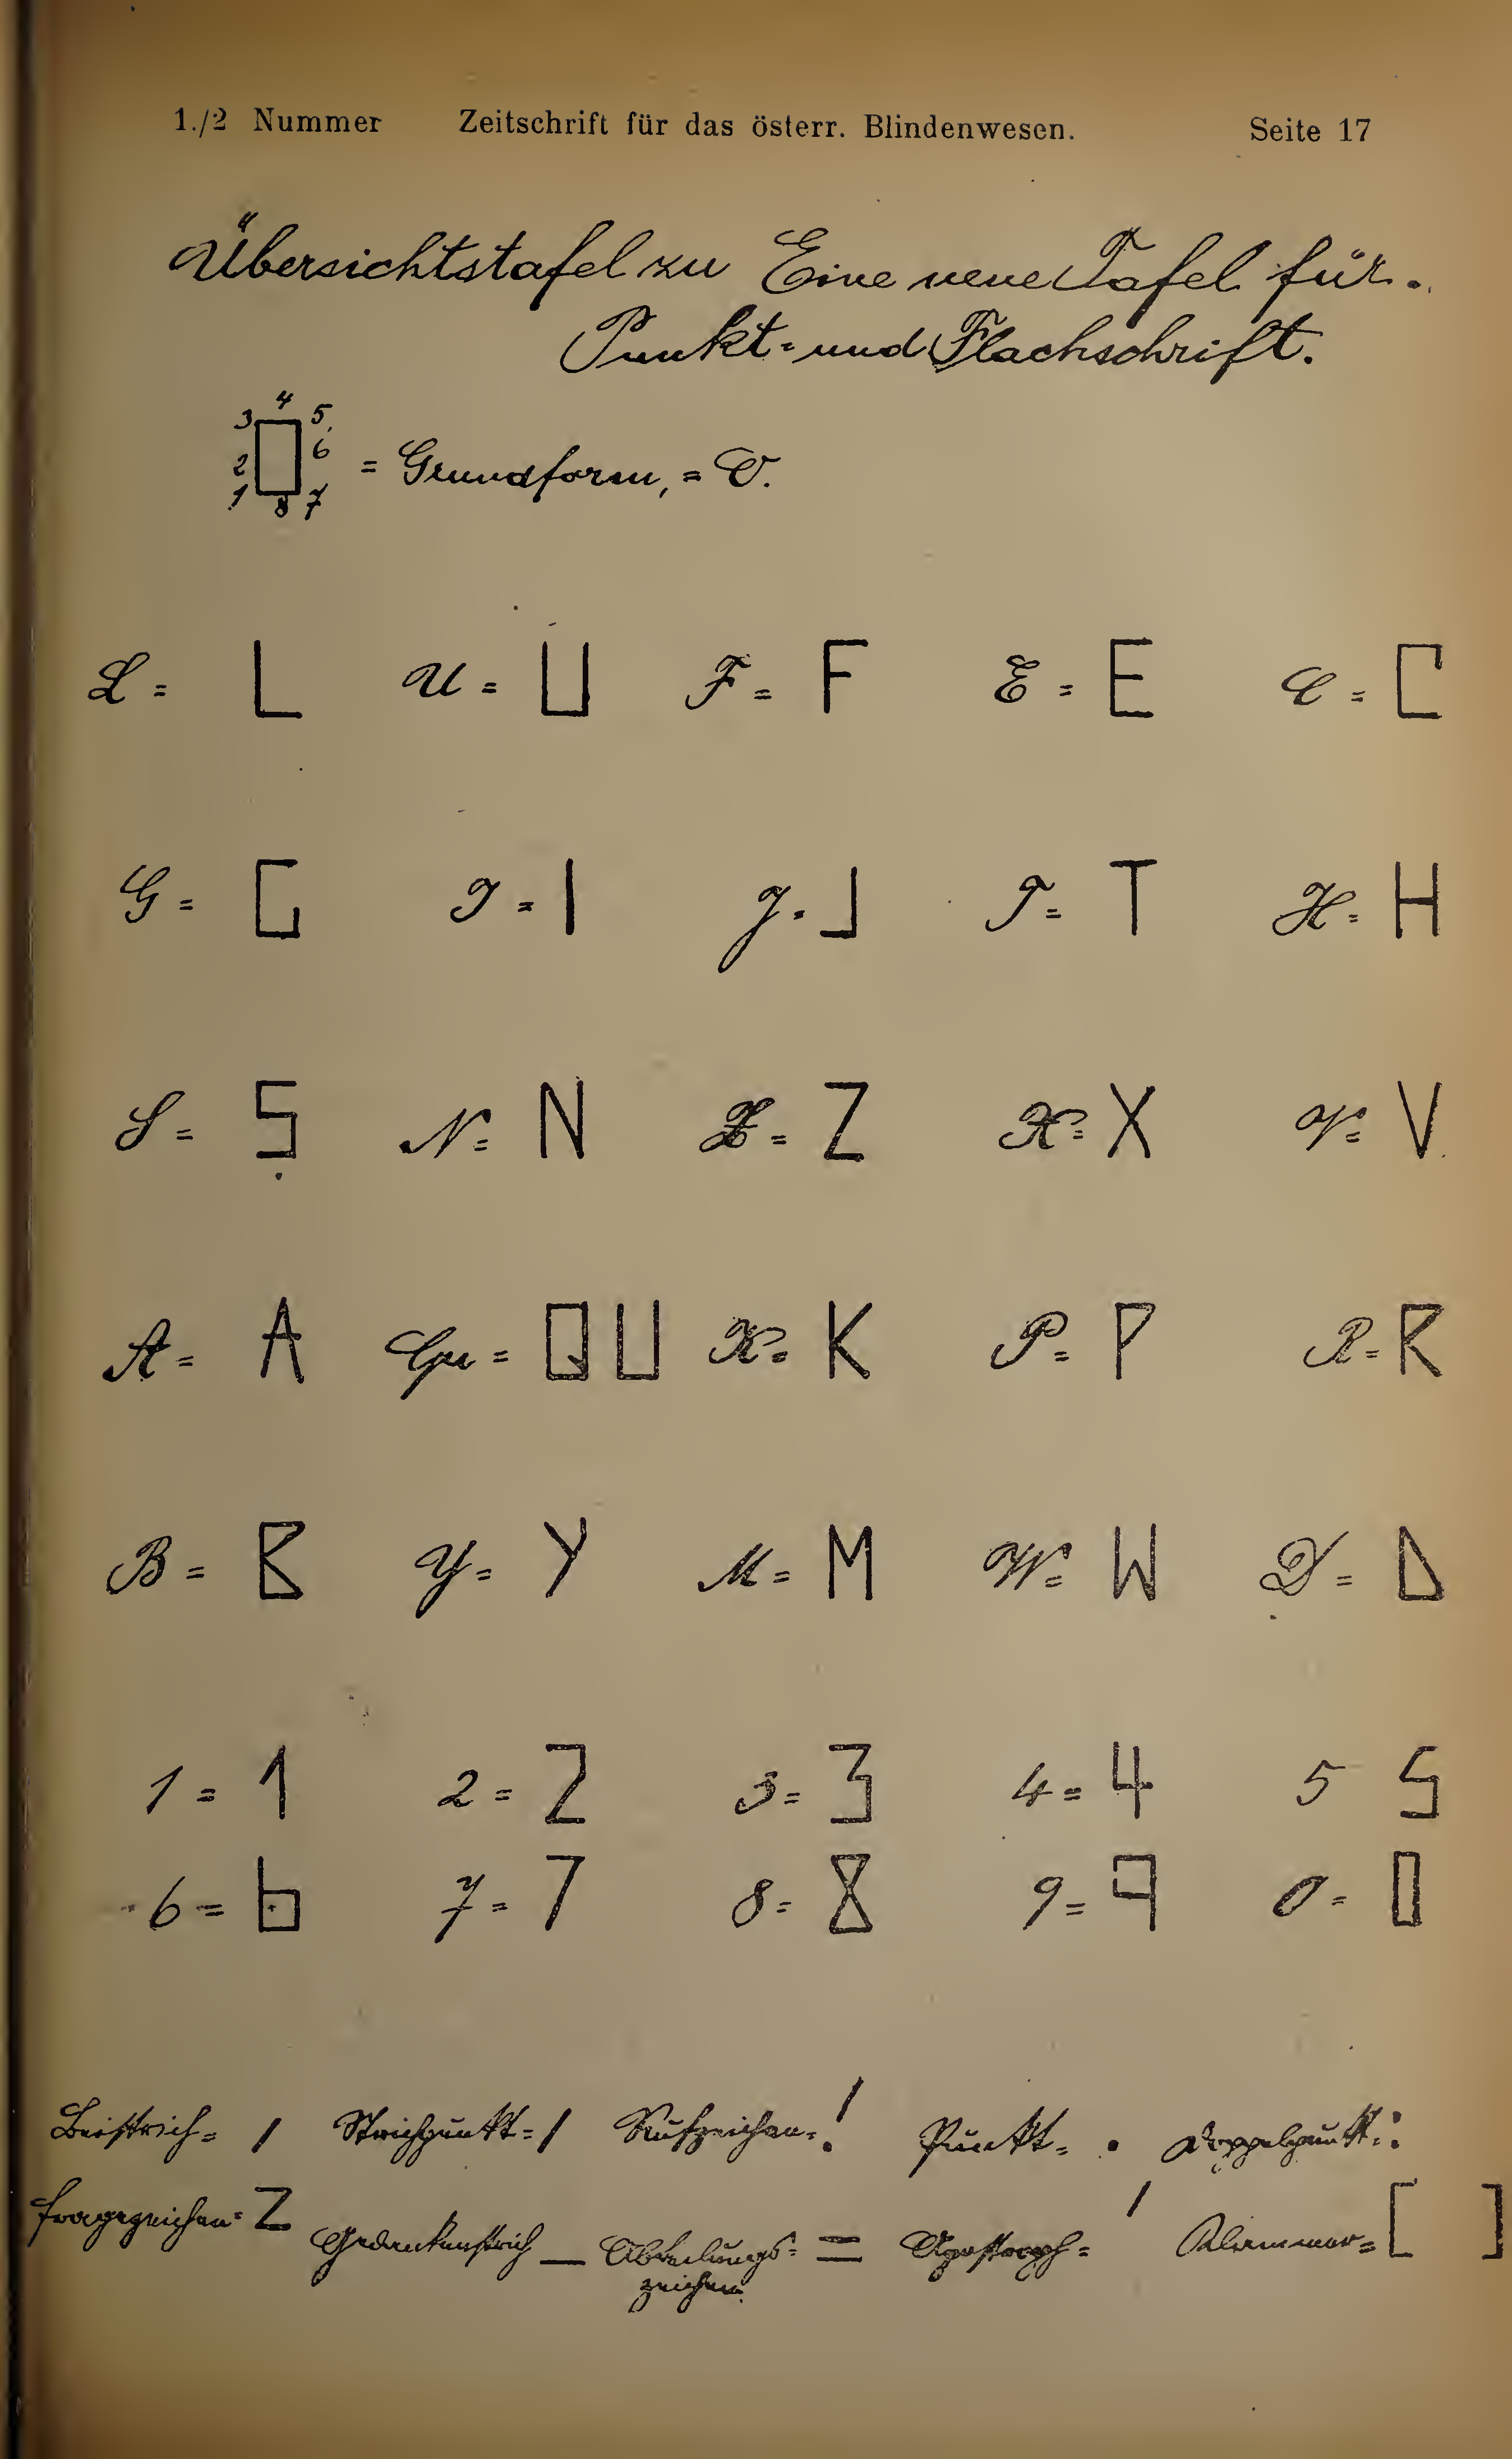 1./2 Nummer Zeitschrift für das österr. Blindenwesen. Seite 17
Übersichtstafel zu Eine neue Tafel für.
Punkt- und Flachschrift.
3 4 5
2 6 = Grundform, = O.
1 8 7
L = L U = U F = F E = E C = C
G = G I = I J = J T = T H = H
S = S N = N Z = Z X = X V = V
A = A Qu = QU K = K P = P R = R
B = B Y = Y M = M W = W D = D
1 = 1 2 = 2 3 = 3 4 = 4 5 5
6 = 6 7 = 7 8 = 8 9 = 9 0 = 0
Beistrich = , Strichpunkt = ; Rufzeichen = ! Punkt = . Doppelpunkt = :
Fragezeichen = Z Gedankenstrich — Abteilungs- = = Apostroph = ' Klammer = [ ]
zeichen